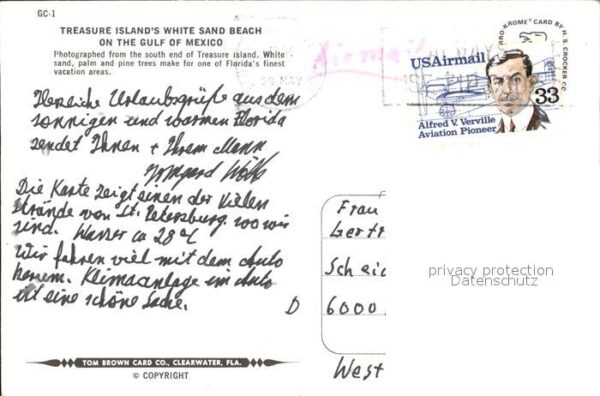 GC-1
TREASURE ISLAND'S WHITE SAND BEACH
ON THE GULF OF MEXICO
Photographed from the south end of Treasure island. White
sand, palm and pine trees make for one of Florida's finest
vacation areas.
Airmail
USAirmail
33
Alfred V. Verville
Aviation Pioneer
KROME CARD BY H. S. CROCKER CO.
Herzliche Urlaubsgrüße aus dem
sonnigen und warmen Florida
sendet Ihnen + Ihrem Mann
Irmgard
Die Karte zeigt einen der vielen
Strände von St. Petersburg, wo wir
sind. Wasser ca 28°C
Wir fahren viel mit dem Auto
herum. Klimaanlage im Auto
ist eine schöne Sache.
Frau
Gertr
Scheid
6000
D
West
privacy protection
Datenschutz
TOM BROWN CARD CO., CLEARWATER, FLA.
© COPYRIGHT